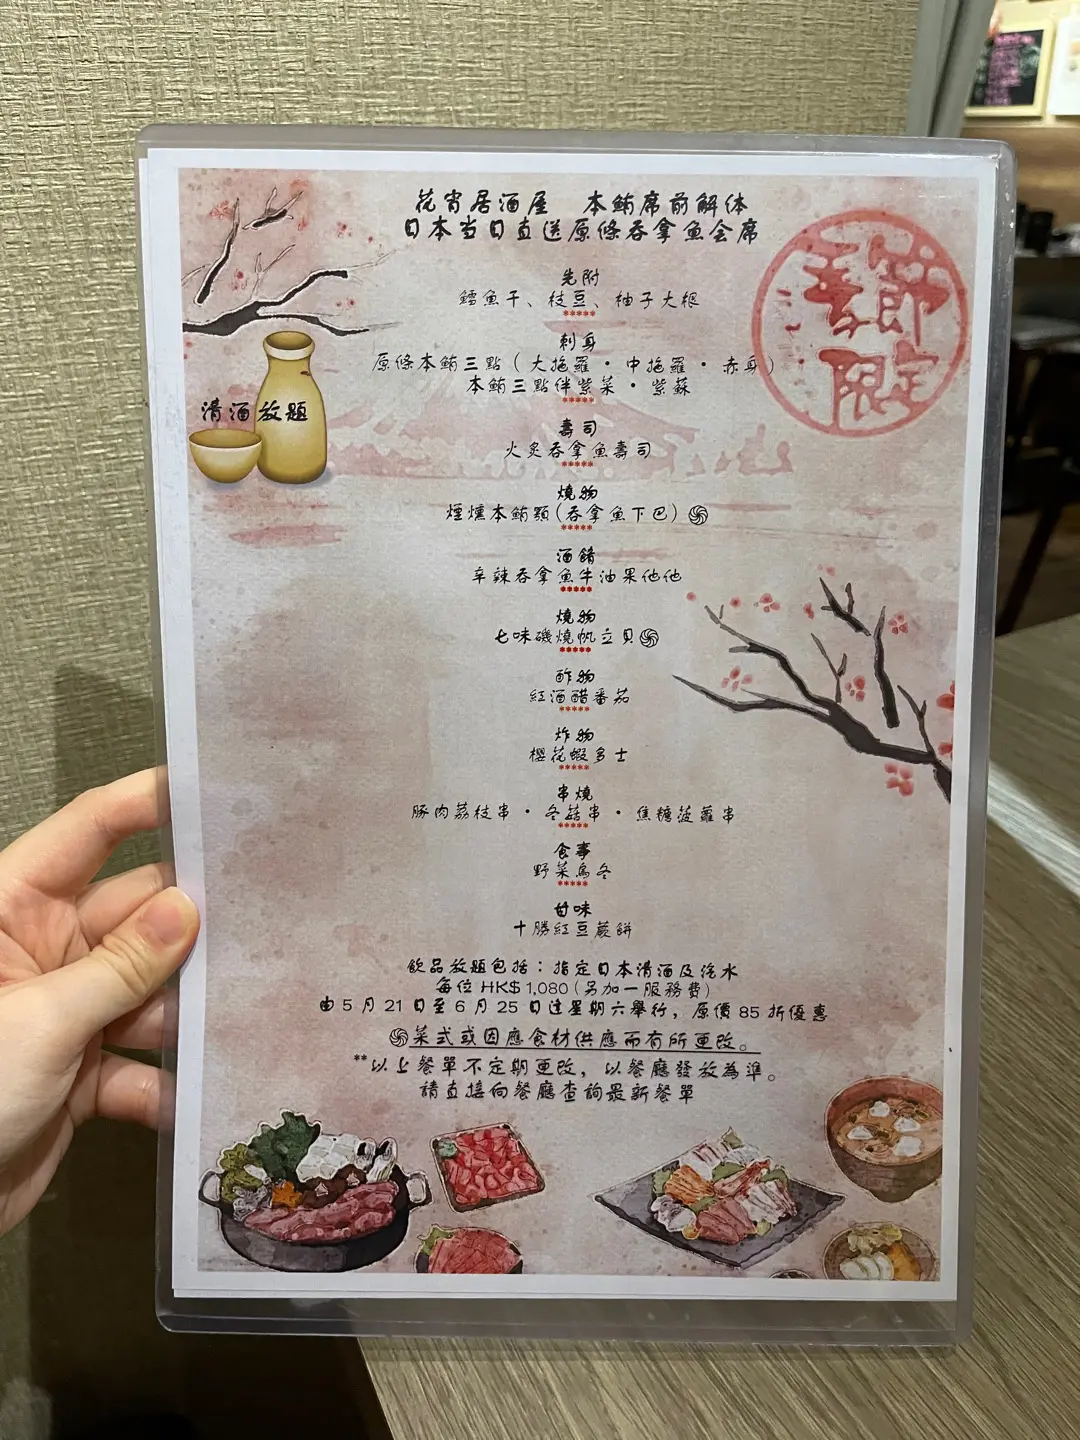 花宵居酒屋 本鮪席前解体
日本当日直送原條吞拿魚会席
季節
限定
先附
鱈魚干、枝豆、柚子大根
*****
刺身
原條本鮪三點（大拖羅・中拖羅・赤身）
本鮪三點伴紫菜・紫蘇
*****
清酒放題
壽司
火炙吞拿魚壽司
*****
燒物
煙燻本鮪顎(吞拿魚下巴)
*****
酒餚
辛辣吞拿魚牛油果他他
*****
燒物
七味磯燒帆立貝
*****
酢物
紅酒醋番茄
*****
炸物
櫻花蝦多士
*****
串燒
豚肉荔枝串・冬菇串・焦糖菠蘿串
*****
食事
野菜烏冬
*****
甘味
十勝紅豆蕨餅
飲品放題包括：指定日本清酒及汽水
每位 HK$ 1,080（另加一服務費）
由 5 月 21 日至 6 月 25 日逢星期六舉行，原價 85 折優惠
菜式或因應食材供應而有所更改。
**以上餐單不定期更改，以餐廳發放為準。
請直接向餐廳查詢最新餐單